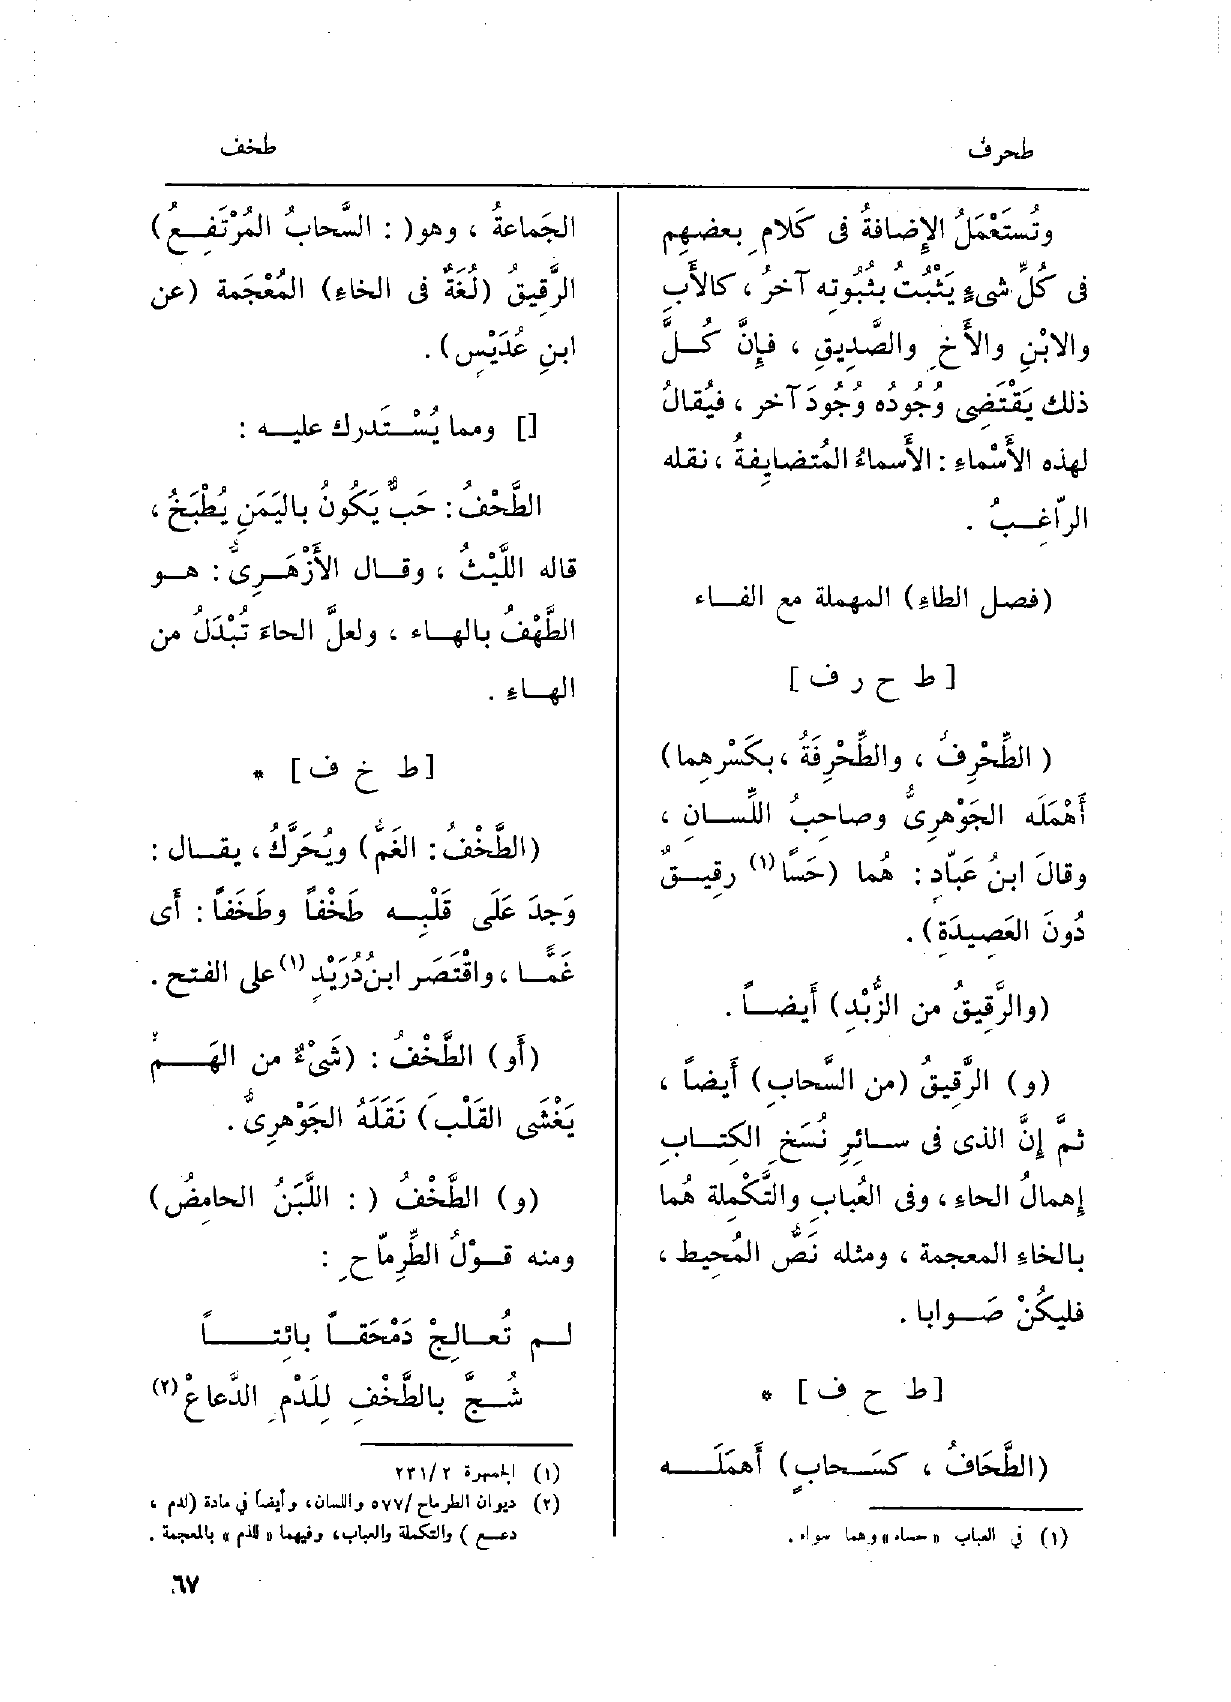 طحرف
طخف
وتُستَعْمَلُ الإِضافةُ فى كَلامِ بعضِهِم
فى كُلِّ شىءٍ يَثْبُتُ بثُبُوتِه آخرُ ، كالأَبِ
والابْنِ والأَخِ والصَّدِيقِ ، فإِنَّ كُـلَّ
ذلك يَقْتَضِى وُجُودُه وُجُودَ آخر ، فيُقالُ
لهذه الأَسْماءِ : الأَسماءُ المُتضايِفةُ ، نقله
الرّاغِـبُ .
(فصل الطاءِ) المهملة مع الفـاء
[ ط ح ر ف ]
( الطِّحْرِفُ ، والطِّحْرِفَةُ ، بكَسْرِهما)
أَهْمَلَه الجَوْهرِىُّ وصاحِبُ اللِّسـانِ ،
وقالَ ابنُ عَبّادٍ : هُما (حَسًا(١) رقِيـقٌ
دُونَ العَصِيدَةِ) .
(والرَّقِيقُ من الزُّبْدِ) أَيضـاً .
(و) الرَّقِيقُ (من السَّحابِ) أَيضاً ،
ثمَّ إِنَّ الذى فى سـائِرِ نُسَخِ الكِتـابِ
إِهمالُ الحاءِ ، وفى العُبابِ والتَّكْمِلة هُما
بالخاءِ المعجمة ، ومثله نَصُّ المُحِيط ،
فليكُنْ صَـوابا .
[ ط ح ف ] *
(الطَّحَافُ ، كسَـحابٍ) أَهمَلَـه
(١) في العباب « حساء » وهما سواء .
الجَماعةُ ، وهو( : السَّحابُ المُرْتَفِـعُ)
الرَّقِيقُ (لُغَةٌ فى الخاءِ) المُعْجَمة (عن
ابنِ عُدَيْسٍ) .
[] ومما يُسْـتَدرك عليـه :
الطَّحْفُ : حَبٌّ يَكُونُ باليَمَنِ يُطْبَخُ ،
قاله اللَّيْثُ ، وقـال الأَزْهَـرِىُّ : هـو
الطَّهْفُ بالهـاء ، ولعلَّ الحاءَ تُبْدَلُ من
الهـاءِ .
[ ط خ ف ] *
(الطَّخْفُ : الغَمُّ) ويُحَرَّكُ ، يقـال :
وَجدَ عَلَى قَلْبِـه طَخْفاً وطَخَفاً : أَى
غَمًّـا ، واقْتَصَر ابنُ دُرَيْدٍ(١) على الفتح .
(أَو) الطَّخْفُ : (شَىْءٌ من الهَـمِّ
يَغْشَى القَلْبَ) نَقَلَهُ الجَوْهرِىُّ .
(و) الطَّخْفُ ( : اللَّبَنُ الحامِضُ)
ومنه قـوْلُ الطِّرِمّاحِ :
لـم تُعـالِجْ دَمْحَقـاً بائِتـاً
شُـجَّ بالطَّخْفِ لِلَدْمِ الدَّعاعْ(٢)
(١) الجمهرة ٢٣١/٢
(٢) ديوان الطرماح /٥٧٧ واللسان، وأيضاً في مادة (لدم ،
دعـع ) والتكملة والعباب، وفيهما « للذم » بالمعجمة .
٦٧